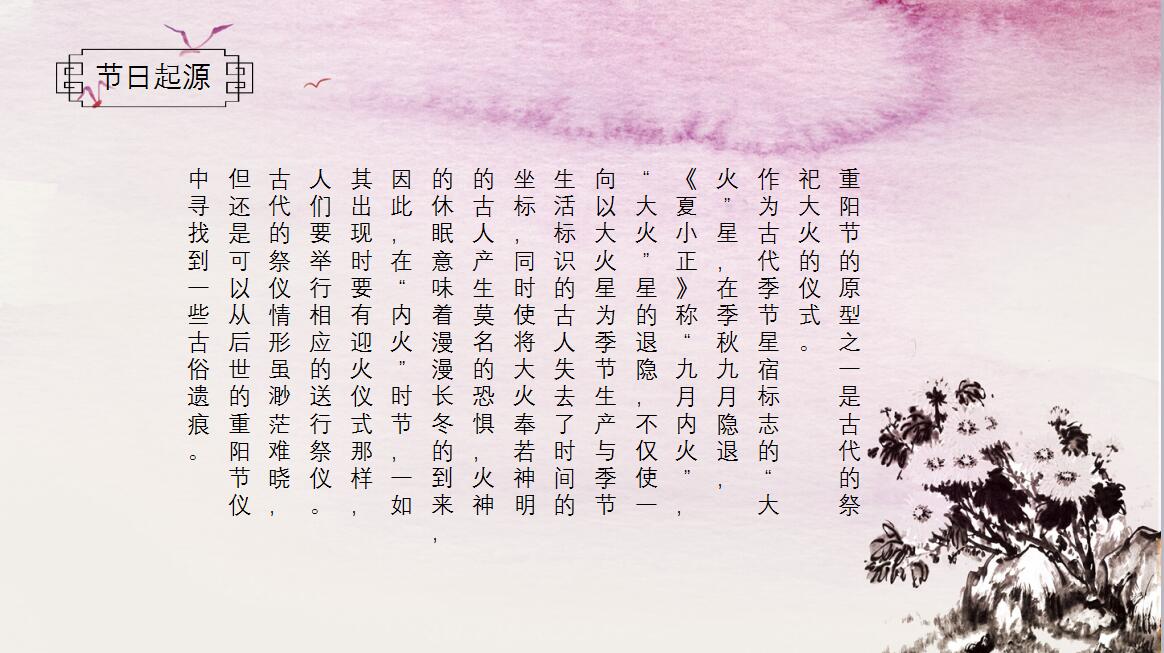 节日起源
重阳节的原型之一是古代的祭
祀大火的仪式。
作为古代季节星宿标志的“大
火”星,在季秋九月隐退,
《夏小正》称“九月内火”,
“大火”星的退隐,不仅使一
向以大火星为季节生产与季节
生活标识的古人失去了时间的
坐标,同时使将大火奉若神明
的古人产生莫名的恐惧,火神
的休眠意味着漫漫长冬的到来,
因此,在“内火”时节,一如
其出现时要有迎火仪式那样,
人们要举行相应的送行祭仪。
古代的祭仪情形虽渺茫难晓,
但还是可以从后世的重阳节仪
中寻找到一些古俗遗痕。